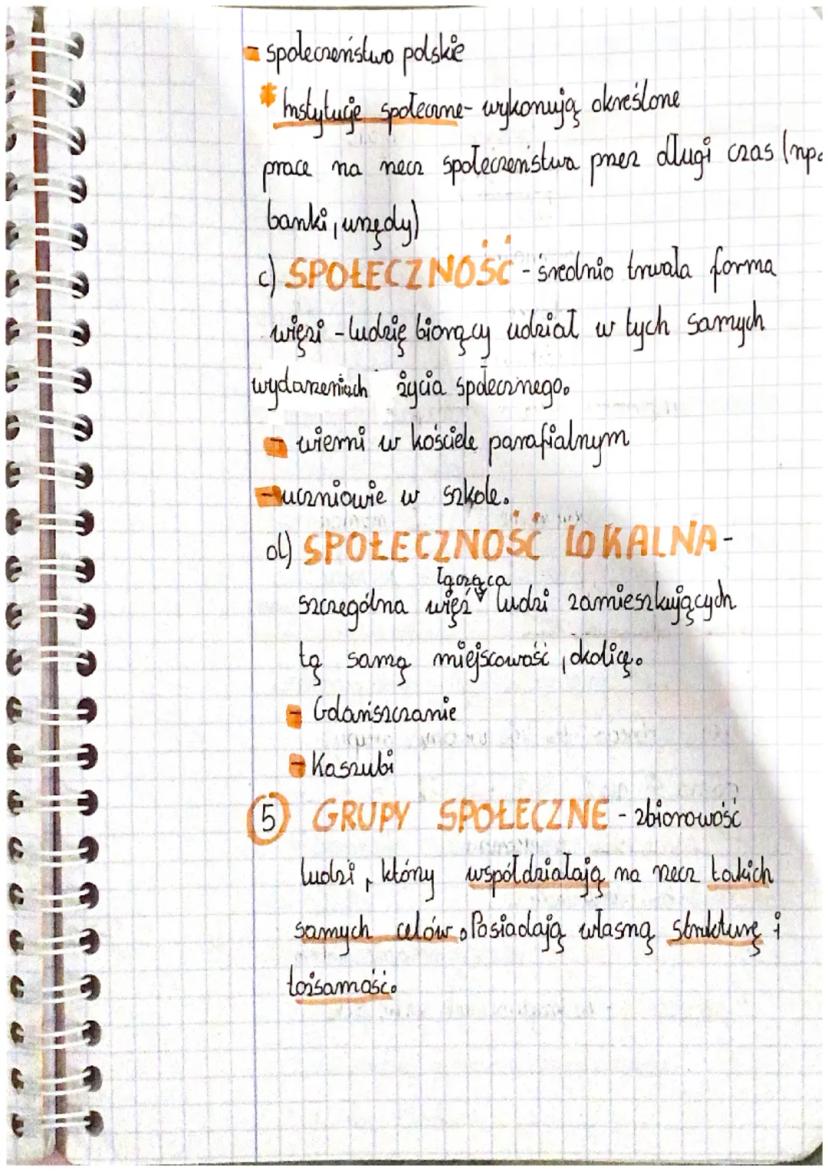 - społeczeństwo polskie
* Instytucje społeczne - wykonują określone
prace na rzecz społeczeństwa przez długi czas (np.
banki, urzędy)
c) SPOŁECZNOŚĆ - średnio trwała forma
więzi - ludzię biorący udział w tych samych
wydarzeniach życia społecznego.
- wierni w kościele parafialnym
- uczniowie w szkole.
d) SPOŁECZNOŚĆ LOKALNA -
łącząca
szczególna więź ludzi zamieszkujących
tą samą miejscowość, okolicę.
- Gdańszczanie
- Kaszubi
5 GRUPY SPOŁECZNE - zbiorowość
ludzi, który współdziałają na rzecz takich
samych celów. Posiadają własną strukturę i
tożsamość.